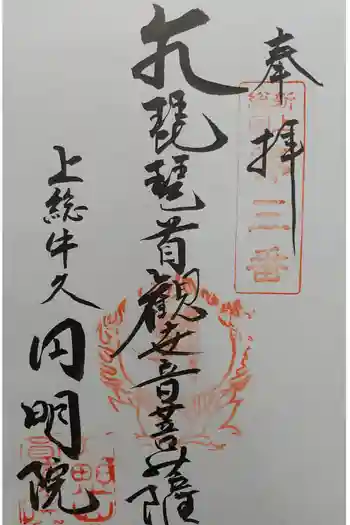 奉拝
琵琶首観世音菩薩
上総牛久
円明院
三番